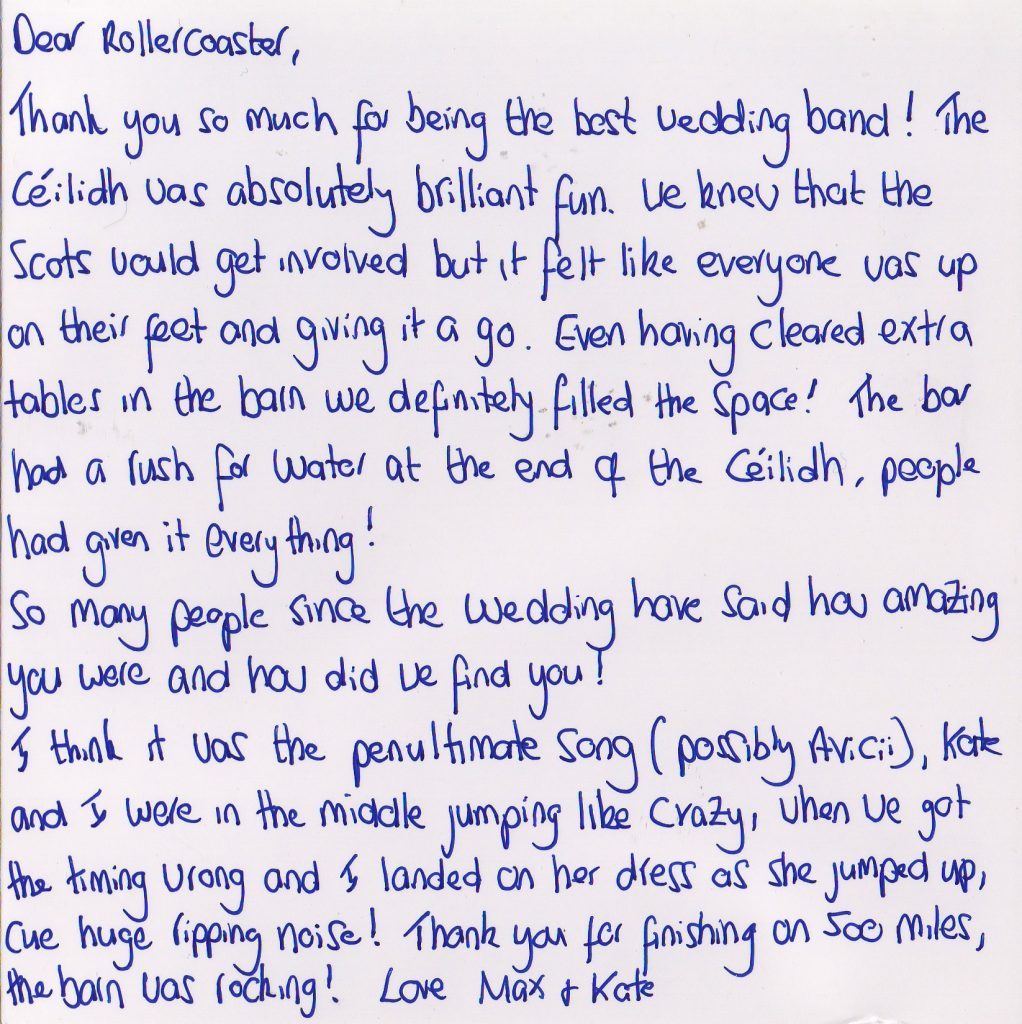 Dear Rollercoaster,
Thank you so much for being the best wedding band! The
Céilidh was absolutely brilliant fun. We knew that the
Scots would get involved but it felt like everyone was up
on their feet and giving it a go. Even having cleared extra
tables in the barn we definitely filled the space! The bar
had a rush for water at the end of the Céilidh, people
had given it everything!
So many people since the wedding have said how amazing
you were and how did we find you!
I think it was the penultimate song (possibly Avicii), Kate
and I were in the middle jumping like crazy, when we got
the timing wrong and I landed on her dress as she jumped up,
cue huge ripping noise! Thank you for finishing on 500 miles,
the barn was rocking! Love Max & Kate